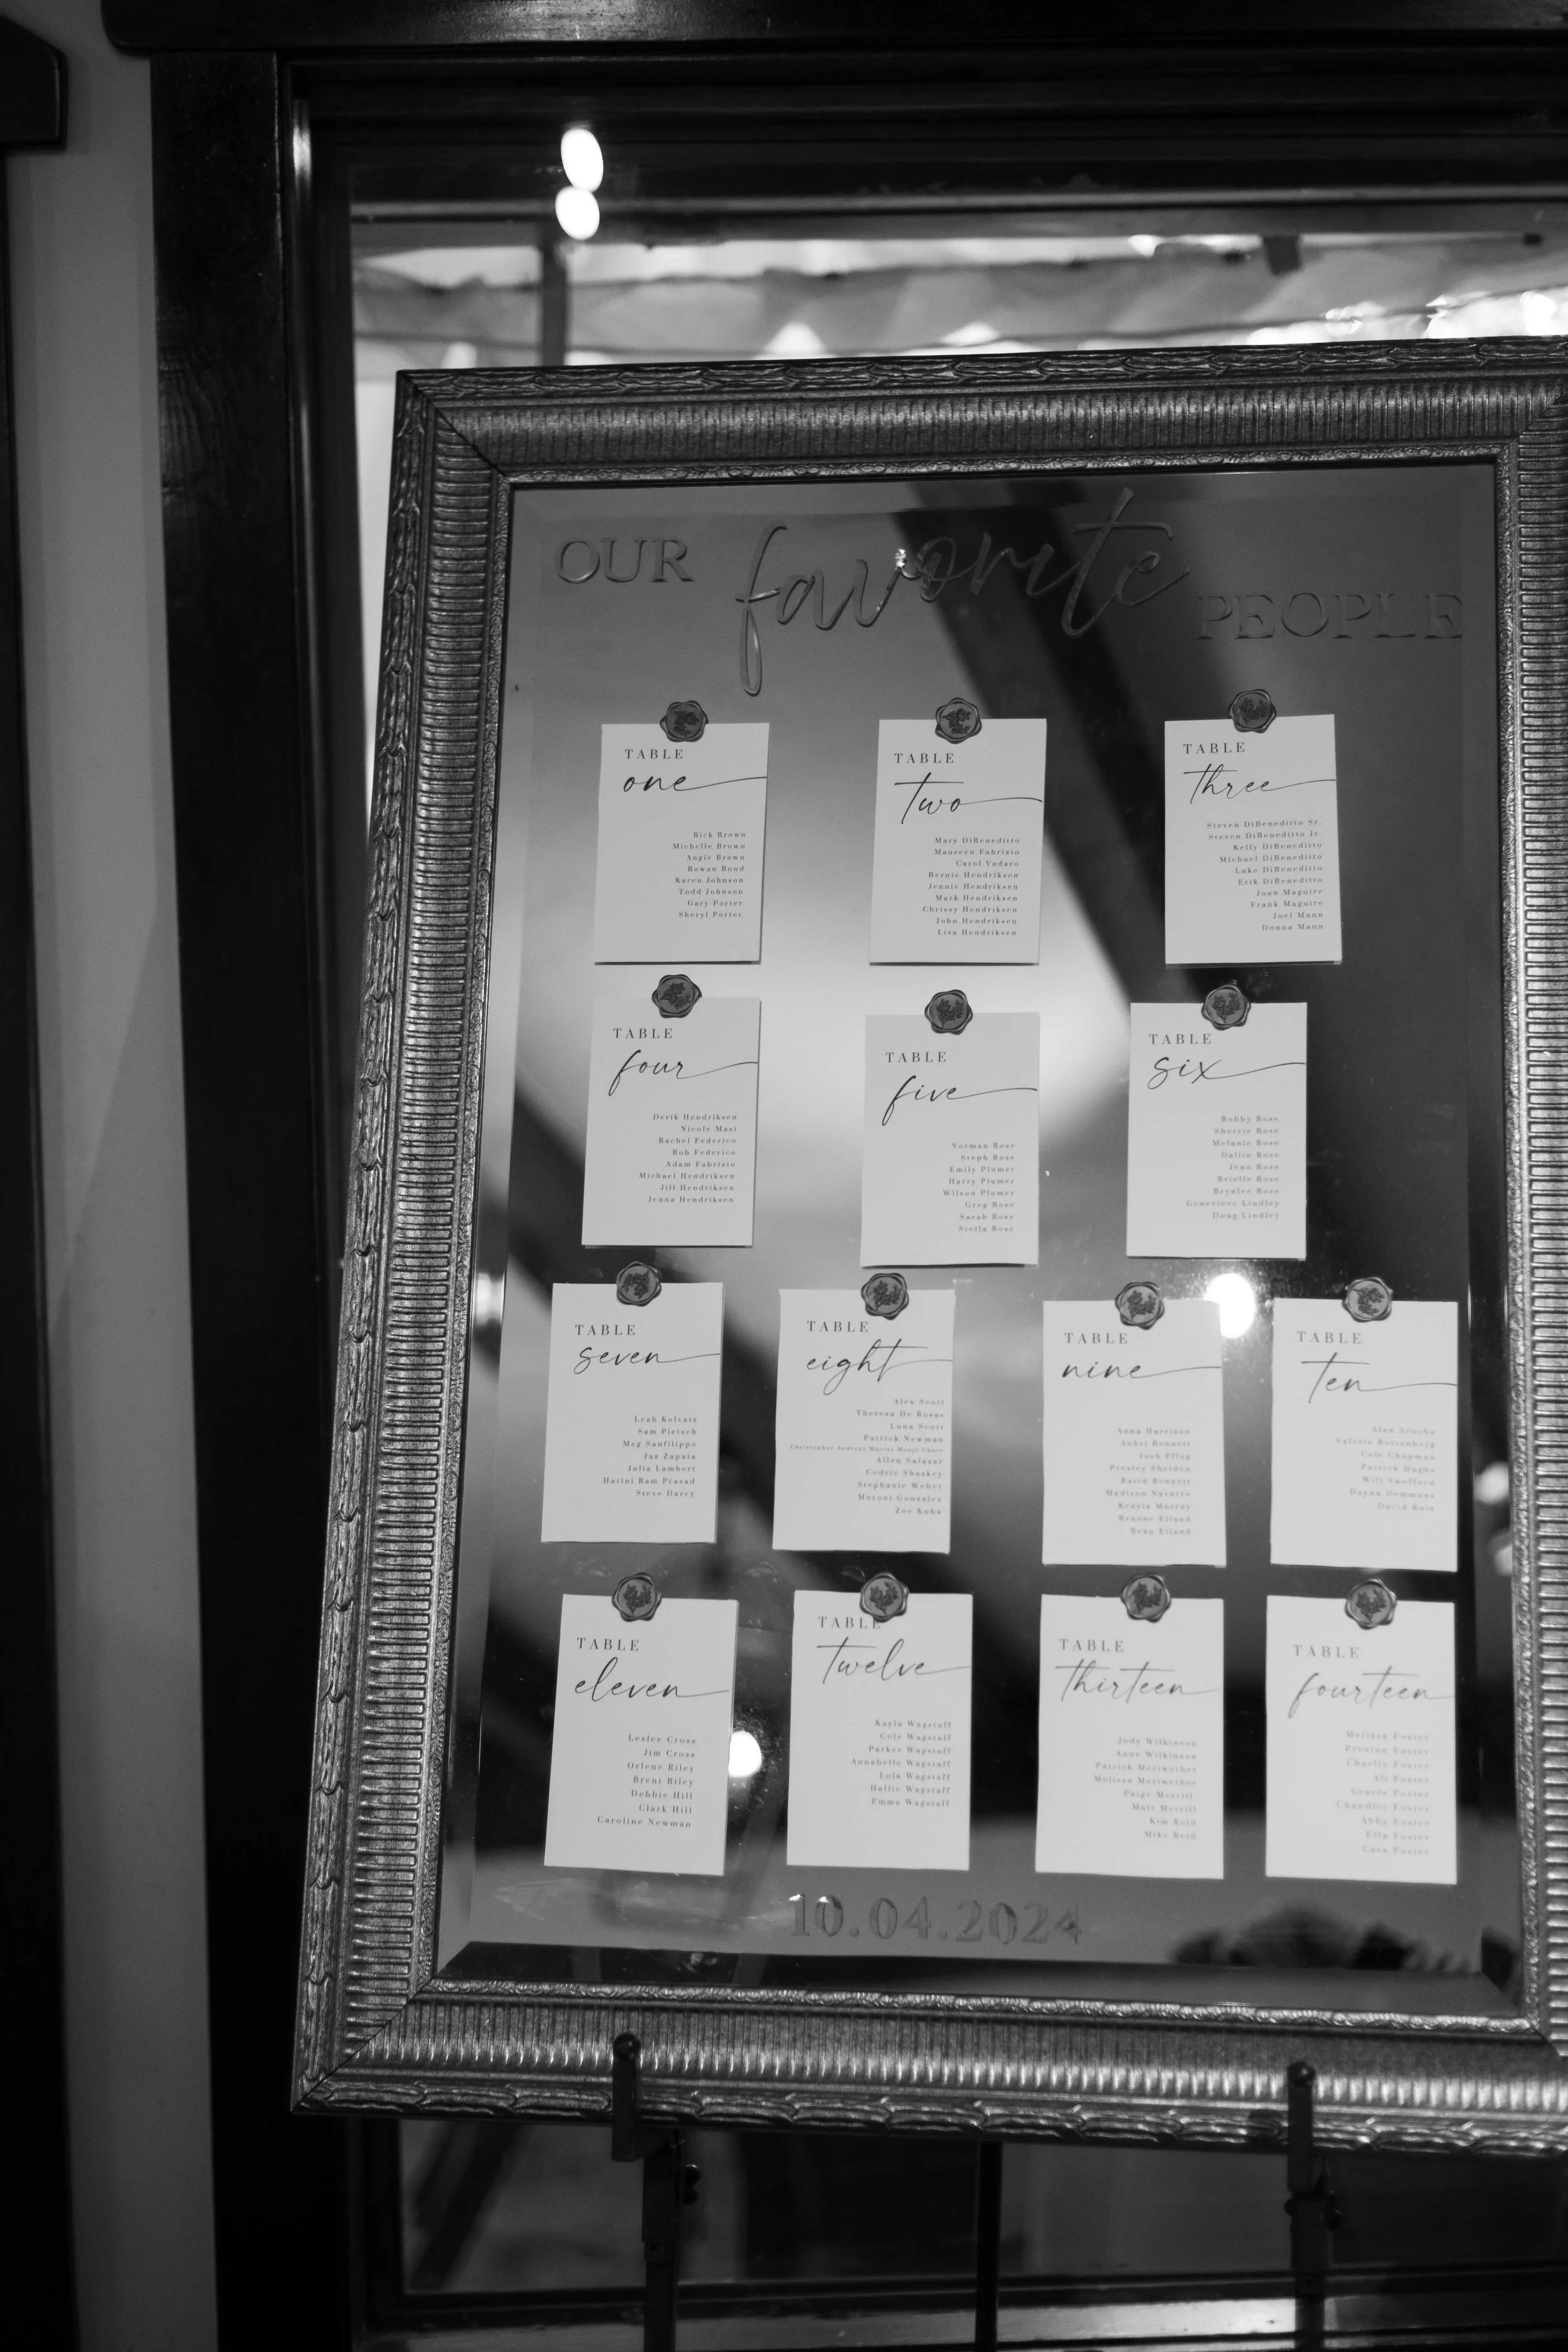 OUR favorite PEOPLE
TABLE
one
Rick Brown
Michelle Brown
Angie Brown
Rowan Bond
Karen Johnson
Todd Johnson
Gary Porter
Sheryl Porter
TABLE
two
Mary DiBeneditto
Maureen Fabrizio
Carol Vadaro
Bernie Hendriksen
Jennie Hendriksen
Mark Hendriksen
Chrissy Hendriksen
John Hendriksen
Lisa Hendriksen
TABLE
three
Steven DiBeneditto Sr.
Steven DiBeneditto Jr.
Kelly DiBeneditto
Michael DiBeneditto
Luke DiBeneditto
Erik DiBeneditto
Joan Maguire
Frank Maguire
Joel Mann
Donna Mann
TABLE
four
Derik Hendriksen
Nicole Masi
Rachel Federico
Rob Federico
Adam Fabrizio
Michael Hendriksen
Jill Hendriksen
Jenna Hendriksen
TABLE
five
Norman Rose
Steph Rose
Emily Plumer
Harry Plumer
Wilson Plumer
Greg Rose
Sarah Rose
Stella Rose
TABLE
six
Bobby Rose
Sherrie Rose
Melanie Rose
Dallin Rose
Jenn Rose
Brielle Rose
Brynlee Rose
Genevieve Lindley
Doug Lindley
TABLE
seven
Leah Kolvatz
Sam Pietsch
Meg Sanfilippo
Jaz Zapata
Julia Lambert
Harini Ram Prasad
Steve Darcy
TABLE
eight
Alex Scott
Theresa De Rosas
Luna Scott
Patrick Newman
Christopher Andreas
Allen Salazar
Cedric Shaskey
Stephanie Weber
Moroni Gonzalez
Zoe Kuba
TABLE
nine
Anna Harrison
Aubri Bennett
Josh Pflug
Presley Sheldon
Baird Bennett
Madison Navarro
Keayla Murray
Reanne Eiland
Beau Eiland
TABLE
ten
Alan
Valerie Rottenberg
Cole Chapman
Patrick Hughs
Will Swofford
Dayna Demmans
David Ruiz
TABLE
eleven
Leslee Cross
Jim Cross
Orlene Riley
Brent Riley
Debbie Hill
Clark Hill
Caroline Newman
TABLE
twelve
Kayla Wagstaff
Cole Wagstaff
Parker Wagstaff
Annabelle Wagstaff
Lola Wagstaff
Hallie Wagstaff
Emma Wagstaff
TABLE
thirteen
Jody Wilkinson
Anne Wilkinson
Patrick Meriwether
Melissa Meriwether
Paige Merrill
Matt Merrill
Kim Reid
Mike Reid
TABLE
fourteen
Melissa Foster
Preston Foster
Charlie Foster
Ali Foster
Gracie Foster
Chandler Foster
Abby Foster
Ella Foster
Cara Foster
10.04.2024